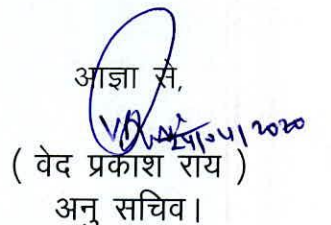 आज्ञा से,
24/04/2020
( वेद प्रकाश राय )
अनु सचिव।